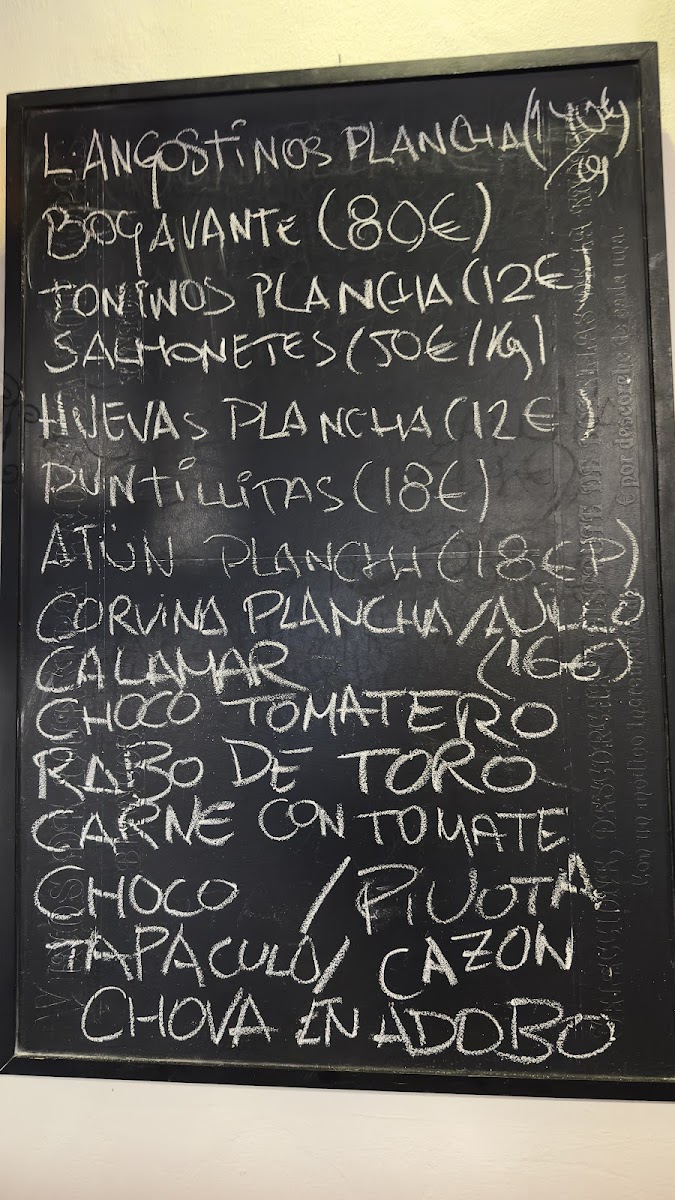 LANGOSTINOS PLANCHA
BOGAVANTE (80€)
TONINOS PLANCHA (12€)
SALMONETES (50€/Kg)
HUEVAS PLANCHA (12€
PUNTILLITAS (18€)
ATÚN PLANCHA (18€P)
CORVINA PLANCHA/AJILLO
CALAMAR (16€)
CHOCO TOMATERO
RABO DE TORO
CARNE CON TOMATE
CHOCO / PIJOTA
TAPACULO/ CAZON
CHOVA EN ADOBO
€ por descorche de cada una.